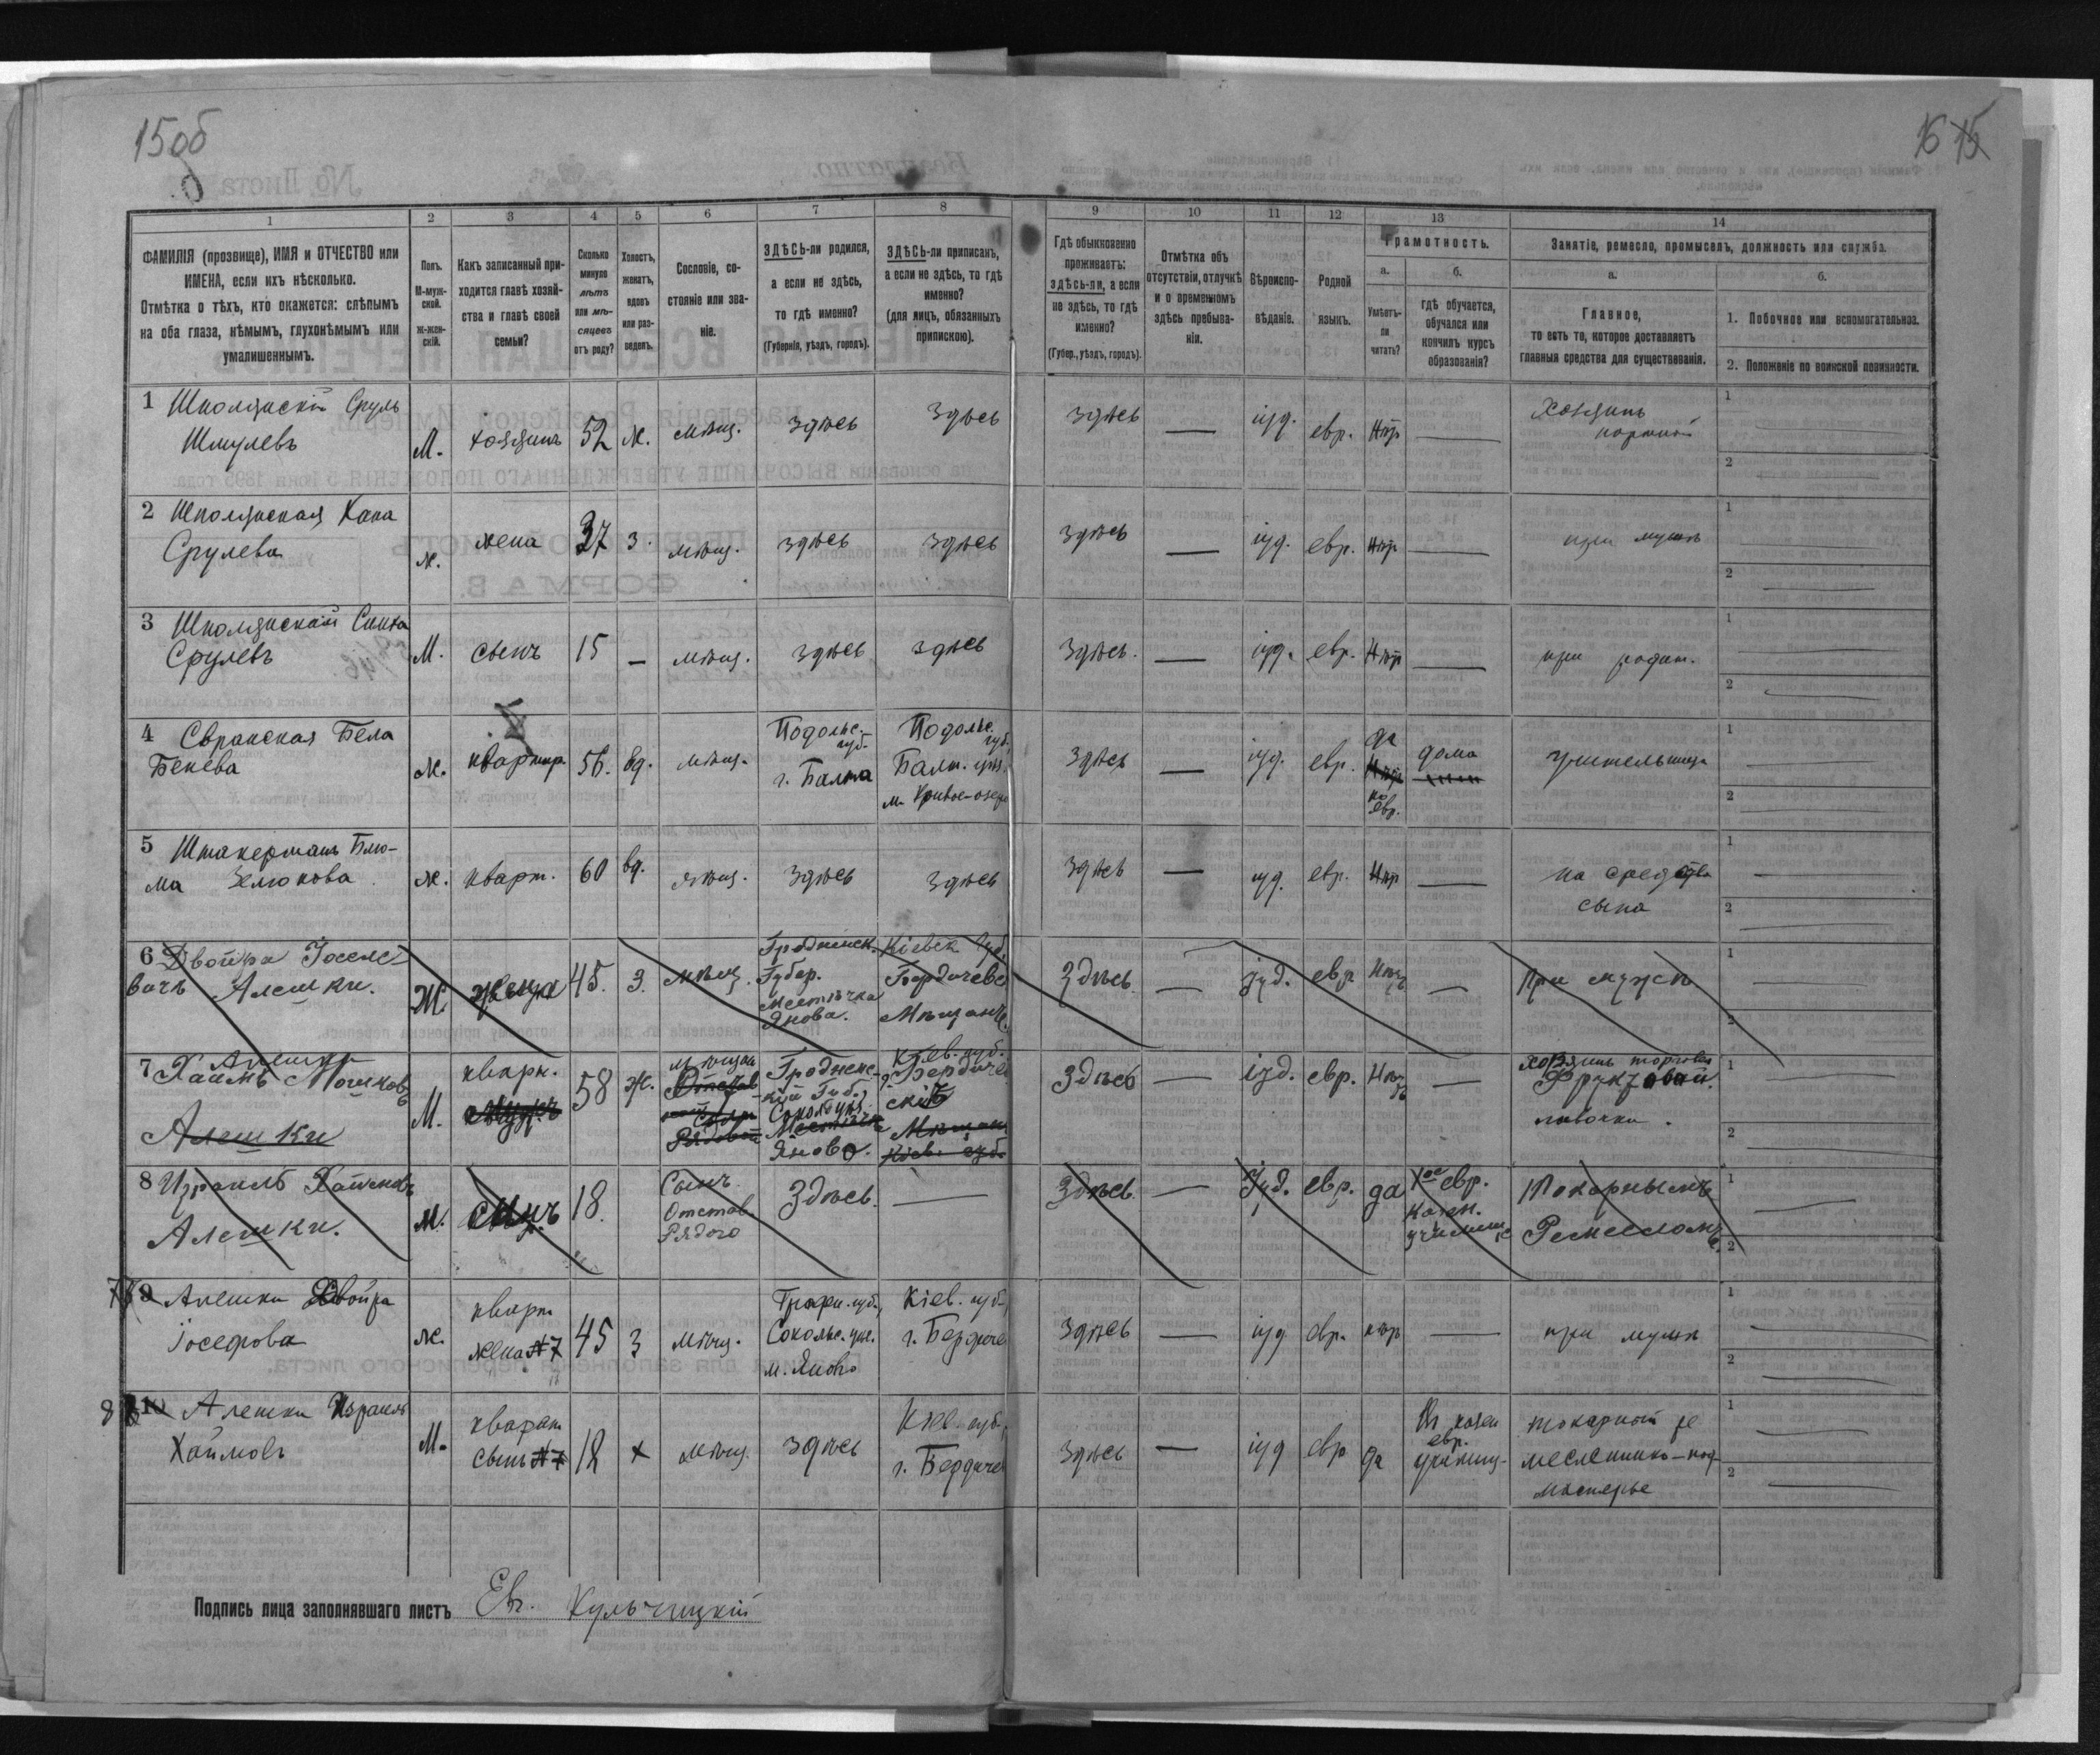 15об
16 15
1
2
3
4
5
6
7
8
9
10
11
12
13
14
ФАМИЛІЯ (прозвище), ИМЯ и ОТЧЕСТВО или
ИМЕНА, если ихъ нѣсколько.
Отмѣтка о тѣхъ, кто окажется: слѣпымъ
на оба глаза, нѣмымъ, глухонѣмымъ или
умалишеннымъ.
Полъ.
М-муж-
ской.
Ж-жен-
скій.
Какъ записанный при-
ходится главѣ хозяй-
ства и главѣ своей
семьи?
Сколько
минуло
лѣтъ
или мѣ-
сяцевъ
отъ роду?
Холостъ,
женатъ,
вдовъ
или раз-
веденъ.
Сословіе, со-
стояніе или зва-
ніе.
ЗДѢСЬ-ли родился,
а если не здѣсь,
то гдѣ именно?
(Губернія, уѣздъ, городъ).
ЗДѢСЬ-ли приписанъ,
а если не здѣсь, то гдѣ
именно?
(для лицъ, обязанныхъ
припискою).
Гдѣ обыкновенно
проживаетъ:
здѣсь-ли, а если
не здѣсь, то гдѣ
именно?
(Губер., уѣздъ, городъ).
Отмѣтка объ
отсутствіи, отлучкѣ
и о временномъ
здѣсь пребыва-
ніи.
Вѣроиспо-
вѣданіе.
Родной
языкъ.
Грамотность.
а.
Умѣетъ-
ли
читать?
б.
гдѣ обучается,
обучался или
кончилъ курсъ
образованія?
Занятіе, ремесло, промыселъ, должность или служба.
а.
Главное,
то есть то, которое доставляетъ
главныя средства для существованія.
б.
1. Побочное или вспомогательное.
2. Положеніе по воинской повинности.
1 Шполянскій Сруль
Шмулевъ
М. хозяинъ 52 ж. мѣщ. здѣсь здѣсь здѣсь — іуд. евр. нѣтъ —
Хозяинъ
портной
2 Шполянская Хана
Срулева
ж. жена 37 з. мѣщ. здѣсь здѣсь здѣсь — іуд. евр. нѣтъ — при мужѣ
3 Шполянскій
Срулевъ
М. сынъ 15 — мѣщ. здѣсь здѣсь здѣсь. — іуд. евр. нѣтъ — при родит.
4 Свранская Бела
Бенева
ж. квартир. 56. вд. мѣщ.
Подольс.
губ.
г. Балта
Подольс.
губ.
Балт. уѣз.
м. Кривое-озеро
здѣсь — іуд. евр.
да
нѣтъ
по
евр.
дома
учительница
5 Штакерманъ Блю-
ма Зелюкова
ж. кварт. 60 вд. мѣщ. здѣсь здѣсь здѣсь — іуд. евр. нѣтъ —
на средства
сына
6 Двойра Іоселе
вичъ Алешки.
Ж. жена 45. З. мѣщ.
Гродненск.
Губер.
Мѣстѣчка
Янова.
Кіевск Губ.
Бердичевс
Мѣщанъ
Здѣсь — Іуд. евр Нѣтъ — При мужѣ
7 Алешки
Хаимъ Мошковъ
Алешки
М.
кварт.
мужъ
58 ж.
мѣщан
Отстав
Рядовой
Гродненс-
кій Губ.
Сокол. уѣз.
Местечка
Яново.
Кіев. губ.
г. Бердиче
скій
Мѣщан
Кіев. губ.
Здѣсь — іуд. евр. Нѣтъ —
хозяинъ торговли
Фруктовой
лавочки.
8 Израиль Хаимовъ
Алешки.
М. сынъ 18.
Сынъ
Отстав.
Рядого
Здѣсь. — Здѣсь. — Іуд. евр. да
1ое евр.
казен.
училище
Токарнымъ
Ремесломъ
9 Алешки Двойра
Іосефова
ж.
кварт
жена №7
45 з мѣщ.
Гродн. губ.,
Сокольс. уѣз.
м. Яново
Кіев. губ.,
г. Бердиче
здѣсь — іуд евр. нѣтъ — при мужѣ
8 10 Алешки Израиль
Хаимовъ
М.
кварт
сынъ №7
18 х мѣщ. здѣсь
Кіев. губ.,
г. Бердичев
здѣсь — іуд евр да
въ казен
евр.
училищ-
токарной ре
месленникъ-под-
мастерье
Подпись лица заполнявшаго листъ Ев. Кульчицкій